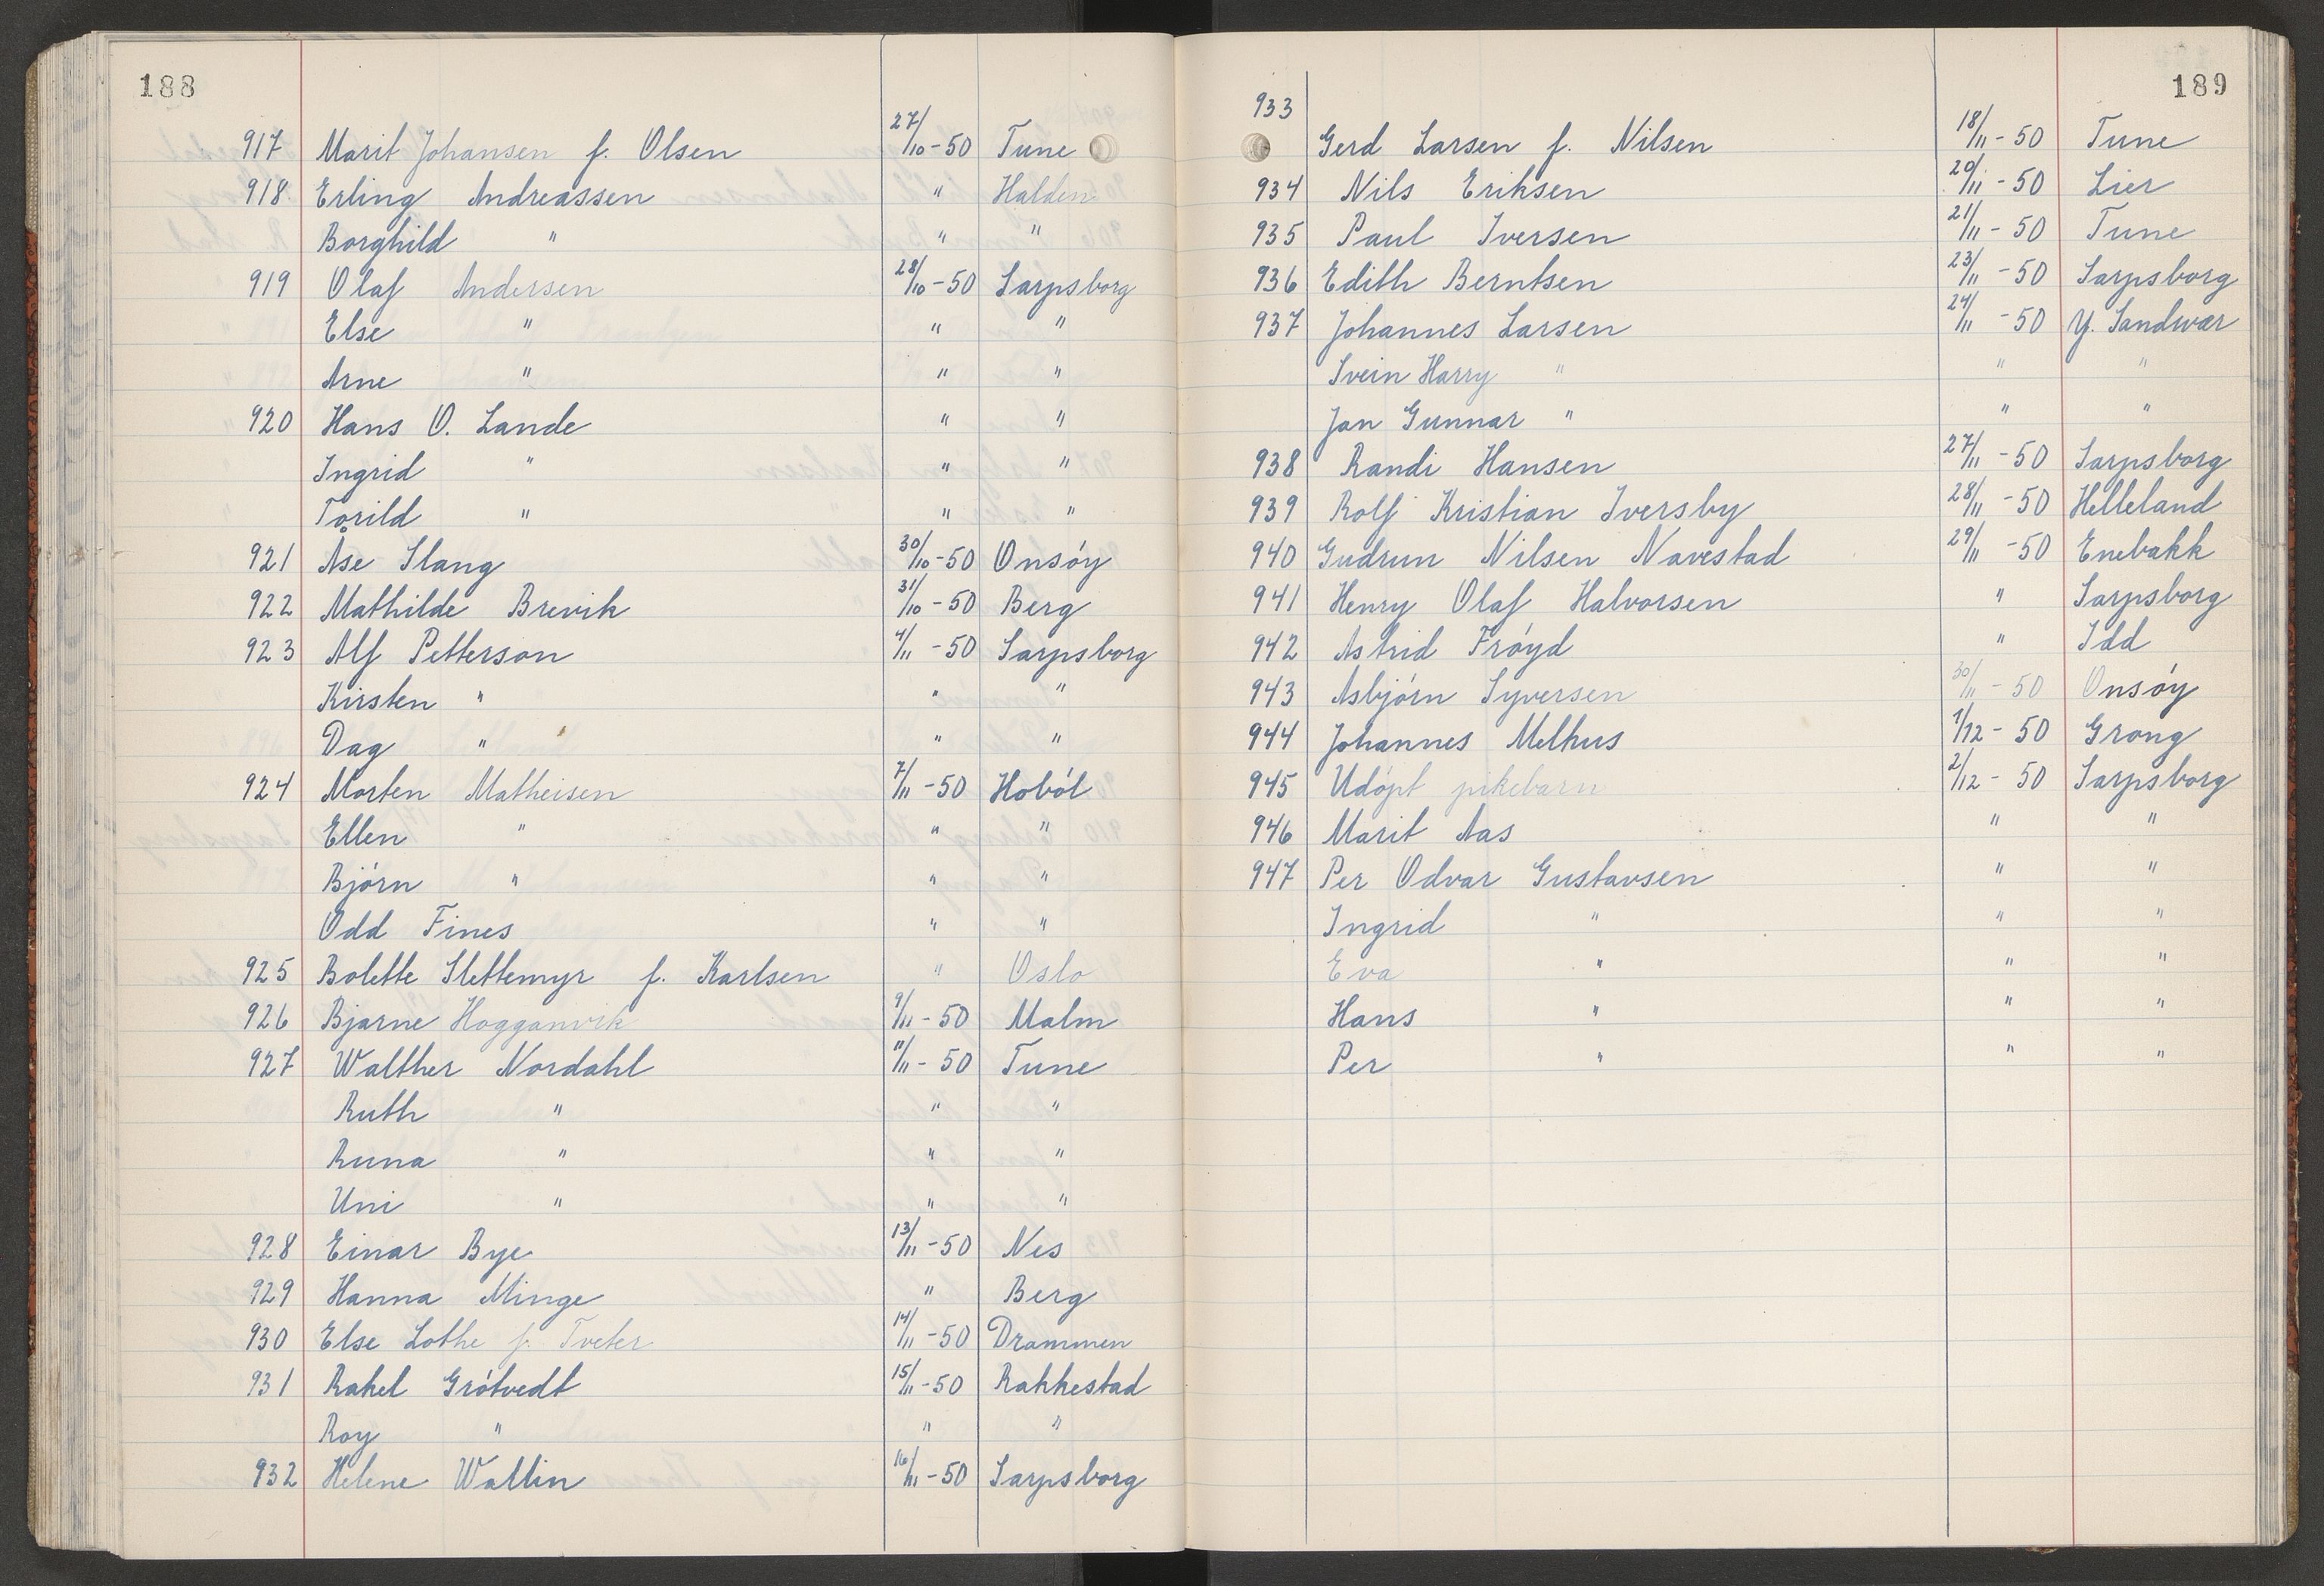 188
917 Marit Johansen f. Olsen 27/10-50 Tune
918 Erling Andreassen " Halden
Borghild " " "
919 Olaf Andersen 28/10-50 Sarpsborg
Else " " "
Arne " " "
920 Hans O. Lande " "
Ingrid " " "
Torild " " "
921 Åse Slang 30/10-50 Onsøy
922 Mathilde Brevik 31/10-50 Berg
923 Alf Petterson 4/11-50 Sarpsborg
Kirsten " " "
Dag " " "
924 Morten Matheisen 7/11-50 Hobøl
Ellen " " "
Bjørn " " "
Odd Fines " "
925 Bolette Slettemyr f. Karlsen " Oslo
926 Bjarne Hogganvik 9/11-50 Malm
927 Walther Nordahl 11/11-50 Tune
Ruth " " "
Runa " " "
Uni " " "
928 Einar Bye 13/11-50 Nes
929 Hanna Minge " Berg
930 Else Lothe f. Tveter 14/11-50 Drammen
931 Rakel Grøtvedt 15/11-50 Rakkestad
Roy " " "
932 Helene Wallin 16/11-50 Sarpsborg
189
933 Gerd Larsen f. Nilsen 18/11-50 Tune
934 Nils Eriksen 20/11-50 Lier
935 Paul Iversen 21/11-50 Tune
936 Edith Berntsen 23/11-50 Sarpsborg
937 Johannes Larsen 24/11-50 Y. Sandsvær
Svein Harry " " "
Jan Gunnar " " "
938 Randi Hansen 27/11-50 Sarpsborg
939 Rolf Kristian Iversby 28/11-50 Helleland
940 Gudrun Nilsen Navestad 29/11-50 Enebakk
941 Henry Olaf Halvorsen " Sarpsborg
942 Astrid Frøyd " Idd
943 Asbjørn Syversen 30/11-50 Onsøy
944 Johannes Melhus 1/12-50 Grong
945 Udøpt pikebarn 2/12-50 Sarpsborg
946 Marit Aas " "
947 Per Odvar Gustavsen " "
Ingrid " " "
Eva " " "
Hans " " "
Per " " "